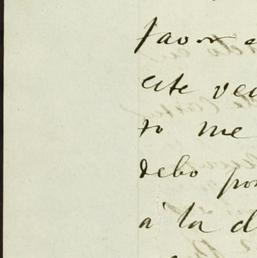 favor
este
to me
debo por
á la d